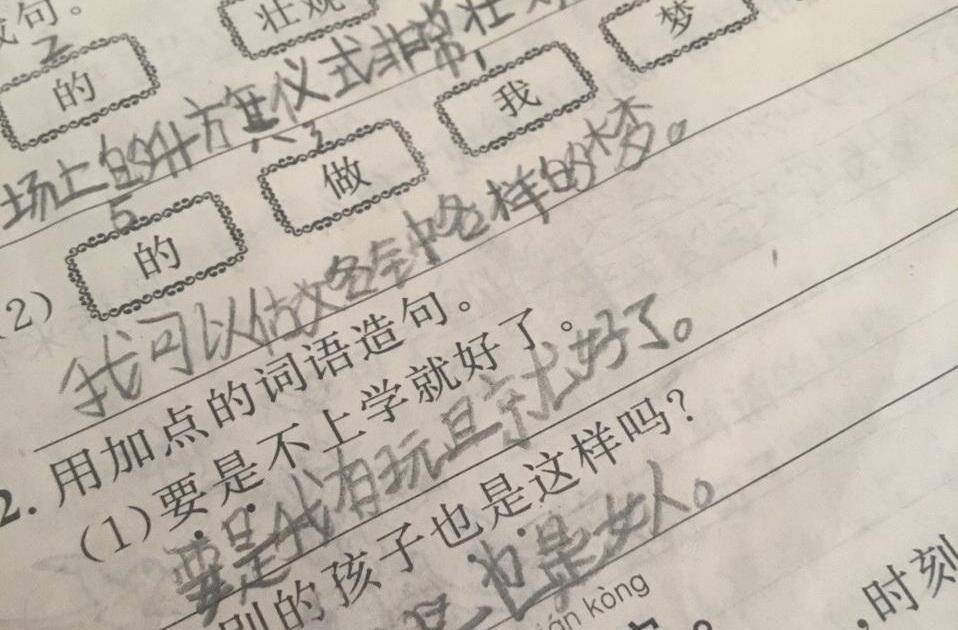 句。
壮观
2
的
场上的升方旗仪式非常壮
3 1
5
的 做 我 梦
2)
我可以做各种各样的梦。
2. 用加点的词语造句。
(1)要是不上学就好了。
要是我有玩具就好了。
别的孩子也是这样吗?
也是女人。
kòng
,时刻